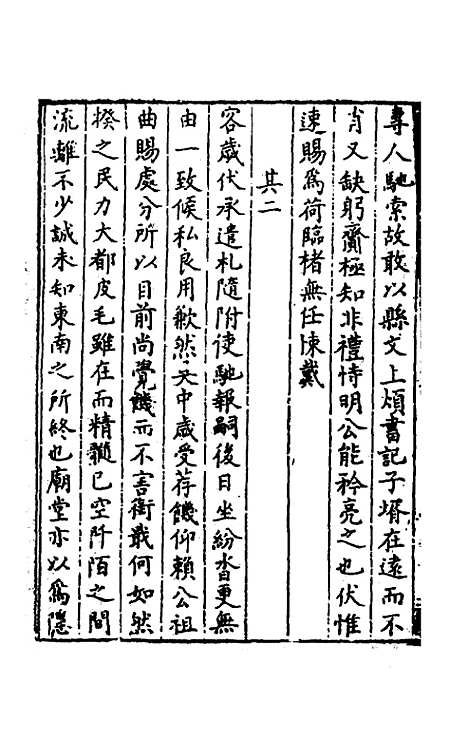 專人馳索故敢以縣文上煩書記子壻在遠而不
肖又缺躬齎極知非禮恃明公能矜亮之也伏惟
速賜爲荷臨楮無任悚戴
其二
客歲代承遣札隨附使馳報嗣後日坐紛沓更無
由一致候私良用歉然吴中歲受荐饑仰賴公祖
曲賜處分所以目前尚覺饑而不害銜戢何如然
揆之民力大都皮毛雖在而精髓已空阡陌之間
流離不少誠未知東南之所終也廟堂亦以爲隱